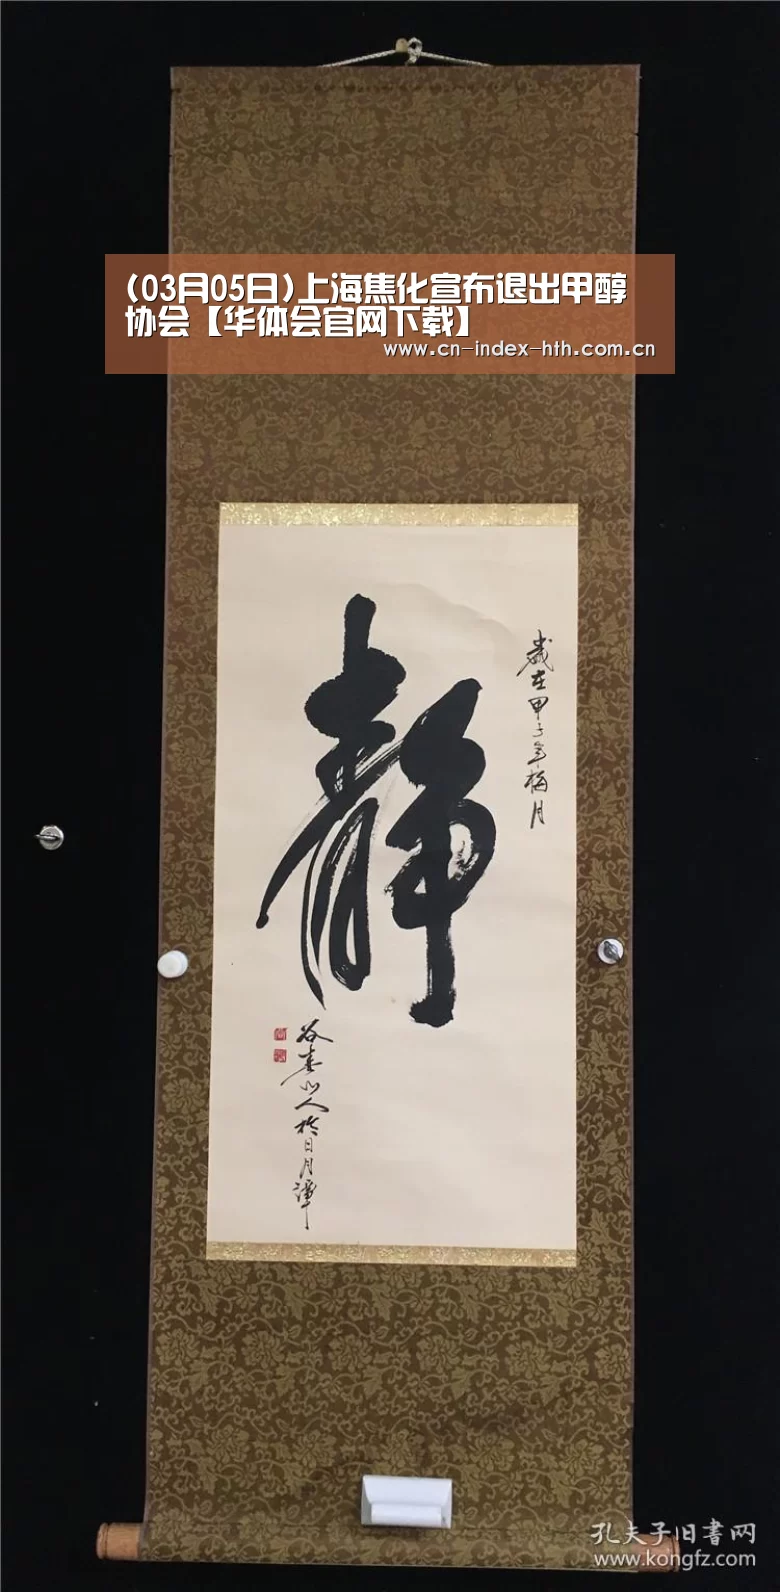 (03月05日)上海焦化宣布退出甲醇
协会【华体会官网下载】
www.cn-index-hth.com.cn
靜
歲在甲子年梅月
谷春山人於日月潭
孔夫子旧書网
www.kongfz.com